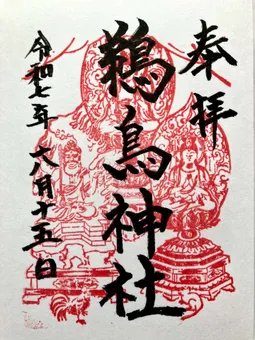 奉拝
鵜鳥神社
令和七年六月十五日